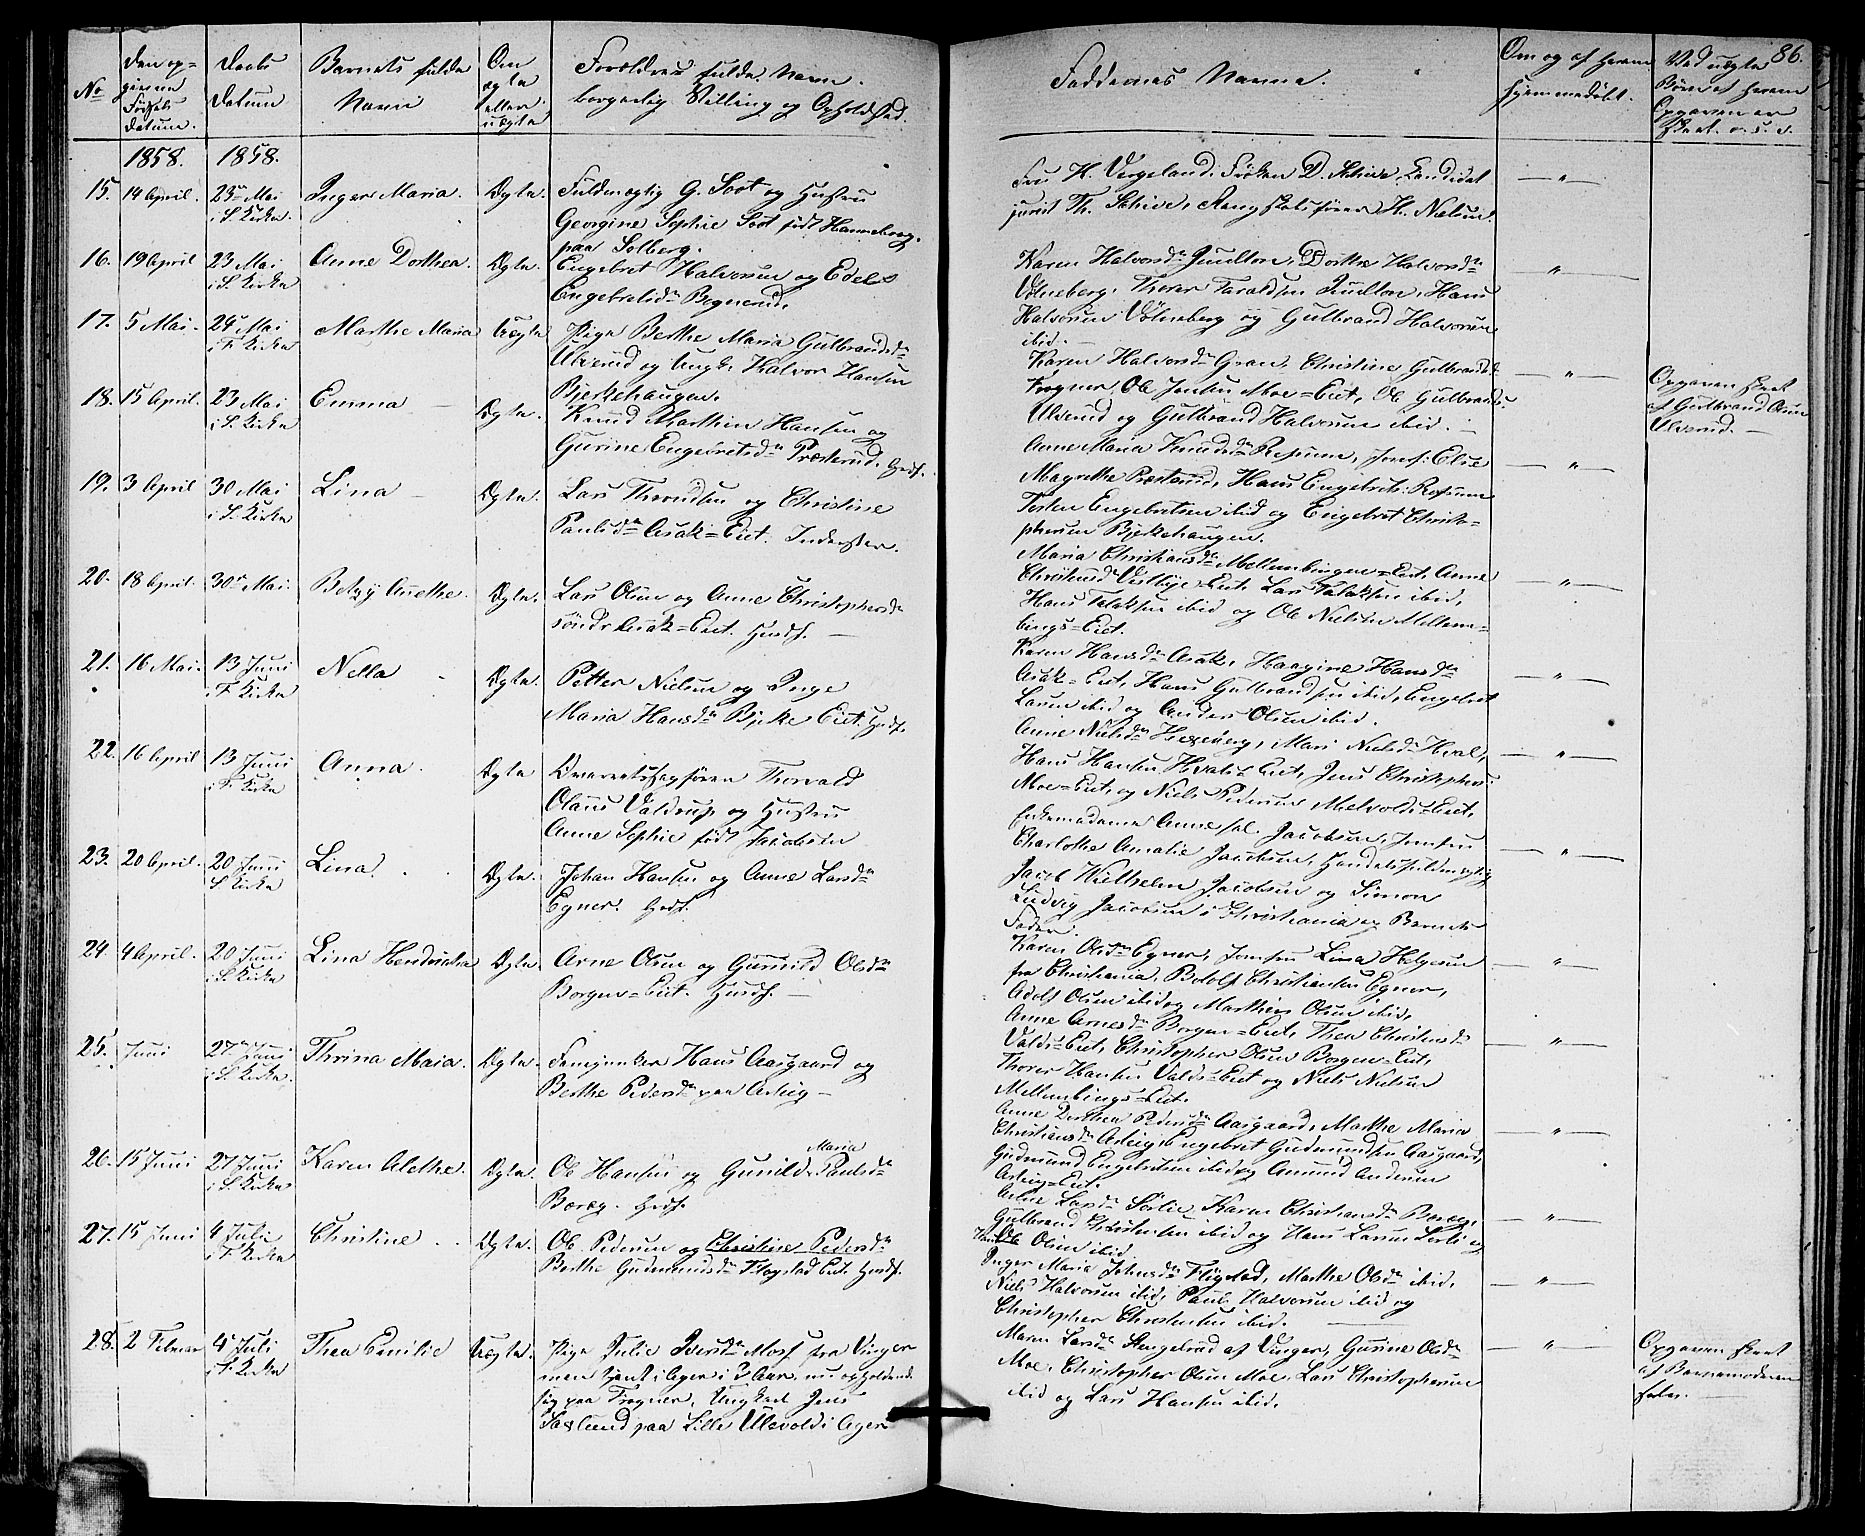 86.
No
Den op-
givne
Fødsels
datum.
Daabs
datum
Barnets fulde
Navn
Om
ægte
eller
uægte
Forældres fulde Navn.
borgerlig Stilling og Opholdsted.
Faddernes Navne.
Om og af hvem
hjemmedøbt.
Ved uægte
Børn af hvem
Opgaven er
skeet. o. s. v.
1858. 1858.
15. 14 April. 23de Mai i S. Kirke. Inger Maria. Ægte. Fuldmægtig G. Soot og Hustru
Georgine Sophie Soot født Hanneborg.
paa Solberg.
Fru H. Vergeland, Frøken D. Schive, Candidat
jurist Th. Schive, H. Nielsen
— " —
16. 19 April 23 Mai i S. Kirke Anne Dorthea. Ægte. Engebret Halvorsen og Edel
Engebretsdr
Karen Halvorsdr Dorthe Halvorsdr
Thorer Taraldsen Hans
Halvorsen og Gulbrand Halvorsen
ibid. —
— " —
17. 5 Mai. 24de Mai i F. Kirke Marthe Maria Uægte Pige Berthe Maria Gulbrandsdr
Ulverud og Ungk. Halvor Hansen
Bjerkehaugen.
Karen Halvorsdr Christine Gulbrandsd
Ole Jensen Moe=Eiet, Ole Gulbrands.
Ulverud og Gulbrand Halvorsen ibid. —
— " —
Opgaven skeet
af Gulbrand Olsen
Ulverud. —
18. 15 April. 23 Mai i S. Kirke Emma — Ægte. Knud Marthin Hansen og
Gurine Engebretsdr Præsterud. Husf.
Anne Maria Knudsdr Jomf: Elise
Magrethe Præsterud, Hans Engebrets:
Torsten Engebretsen ibid og Engebret Christo=
phersen Bjerkehaugen.
— " —
19. 3 April 30 Mai i S. Kirke Lina — Ægte. Lars Throndsen og Christine
Paulsdr Asak=Eiet. Inderster.
Maria Christiansdr Mellembingen=Eiet, Anne
Vestbye=Eiet, Lars ibid,
Hans ibid og Ole Nielsen Mellem=
bings=Eiet.
— " —
20. 18 April. 30te Mai. Betzy Anethe. Ægte. Lars Olsen og Anne Christophersdr
søndre Asak=Eiet. Husf. —
Karen Hansdr Asak, Haagine Hansdr
Asak=Eiet, Hans Gulbrandsen ibid, Engebret
Larsen ibid og Anders Olsen ibid.
— " —
21. 16 Mai. 13 Juni i F. Kirke Nella Ægte. Petter Nielsen og Inge
Maria Hansdr Bjerke Eiet. Husf.
Anne Nielsdr Mari Nielsdr Hval,
Hans Hansen Hvals Eiet, Jens Christophers:
Moe=Eiet, og Niels Pedersen Melvolds=Eiet,
— " —
22. 16 April 13 Juni i F. Kirke Anna. Ægte. Overretssagfører Thorvald
Olaus Valdrup og Hustru
Anne Sophie født Jacobsen
Enkemadame Anne sal. Jacobsen, Jomfru
Charlotte Amalie Jacobsen, Handelsfuldmægtig
Jacob Wilhelm Jacobsen og Simon
Ludvig Jacobsen i Christiania og Barnets
Fader.
— " —
23. 20 April. 20 Juni S. Kirke Lina. Ægte. Johan Hansen og Anne Larsdr
Egner. Husf.
Karen Olsdr Egner, Jomfru Lina Helgesen
fra Christiania, Christiansen Egner,
Adolf Olsen ibid og Mathias Olsen ibid,
— " —
24. 4 April. 20 Juni i S. Kirke Lina Hendrikka Ægte. Arne Olsen og Gunild Olsdr
Borgen=Eiet. Husf. —
Anne Arnesdr Borgen=Eiet, Thea Christensdr
Valds=Eiet, Christopher Olsen Borgen=Eiet,
Thorer Hansen Valds=Eiet og Niels Nielsen
Mellembings=Eiet.
— " —
25. Juni 27de Juni i S. Kirke. Thrina Maria. Ægte. Hans Aasgaard og
Berthe Pedersdr paa Asleig —
Anne Dorthea Pedersdr Aasgaard, Marthe Maria
Christiansdr Asleig, Engebret Gudmundsen Aasgaard,
Gudmund Engebretsen ibid og Amund Andersen
Asleig=Eiet.
— " —
26. 15 Juni 27 Juni i S. Kirke Karen Alethe. Ægte. Ole Hansen og Gunild Maria Paulsdr
Boræg. Husf.
Anne Larsdr Sørlie, Karen Christiansdr Boræg,
Gulbrand Christensen ibid og Hans Larsen Sørli og
Olsen ibid
— " —
27. 15 Juni 4 Juli i F. Kirke Christine. Ægte. Ole Pedersen og Christine Pedersdr
Berthe Gudmundsdr Flogstad Eiet. Husf.
Inger Maria Johnsdr Flogstad, Marthe Olsdr ibid,
Niels Halvorsen ibid, Paul Halvorsen ibid og
Christopher Christensen ibid. —
— " —
28. 2 Februar 4de Juli i F. Kirke Thea Emilie Uægte. Pige Julie Iversdr Moss fra Vinger
men tjent i Ager i 3 Aar, nu opholdende
sig paa Frogner, Ungkarl Jens
Saxlund paa Lille Ulevold i Ager
Maren Larsdr af Vinger, Gurine Olsdr
Moe, Christopher Olsen Moe, Lars Christophersen
ibid og Lars Hansen ibid.
— " —
Opgaven skeet
af Barnemoderen
selv. —